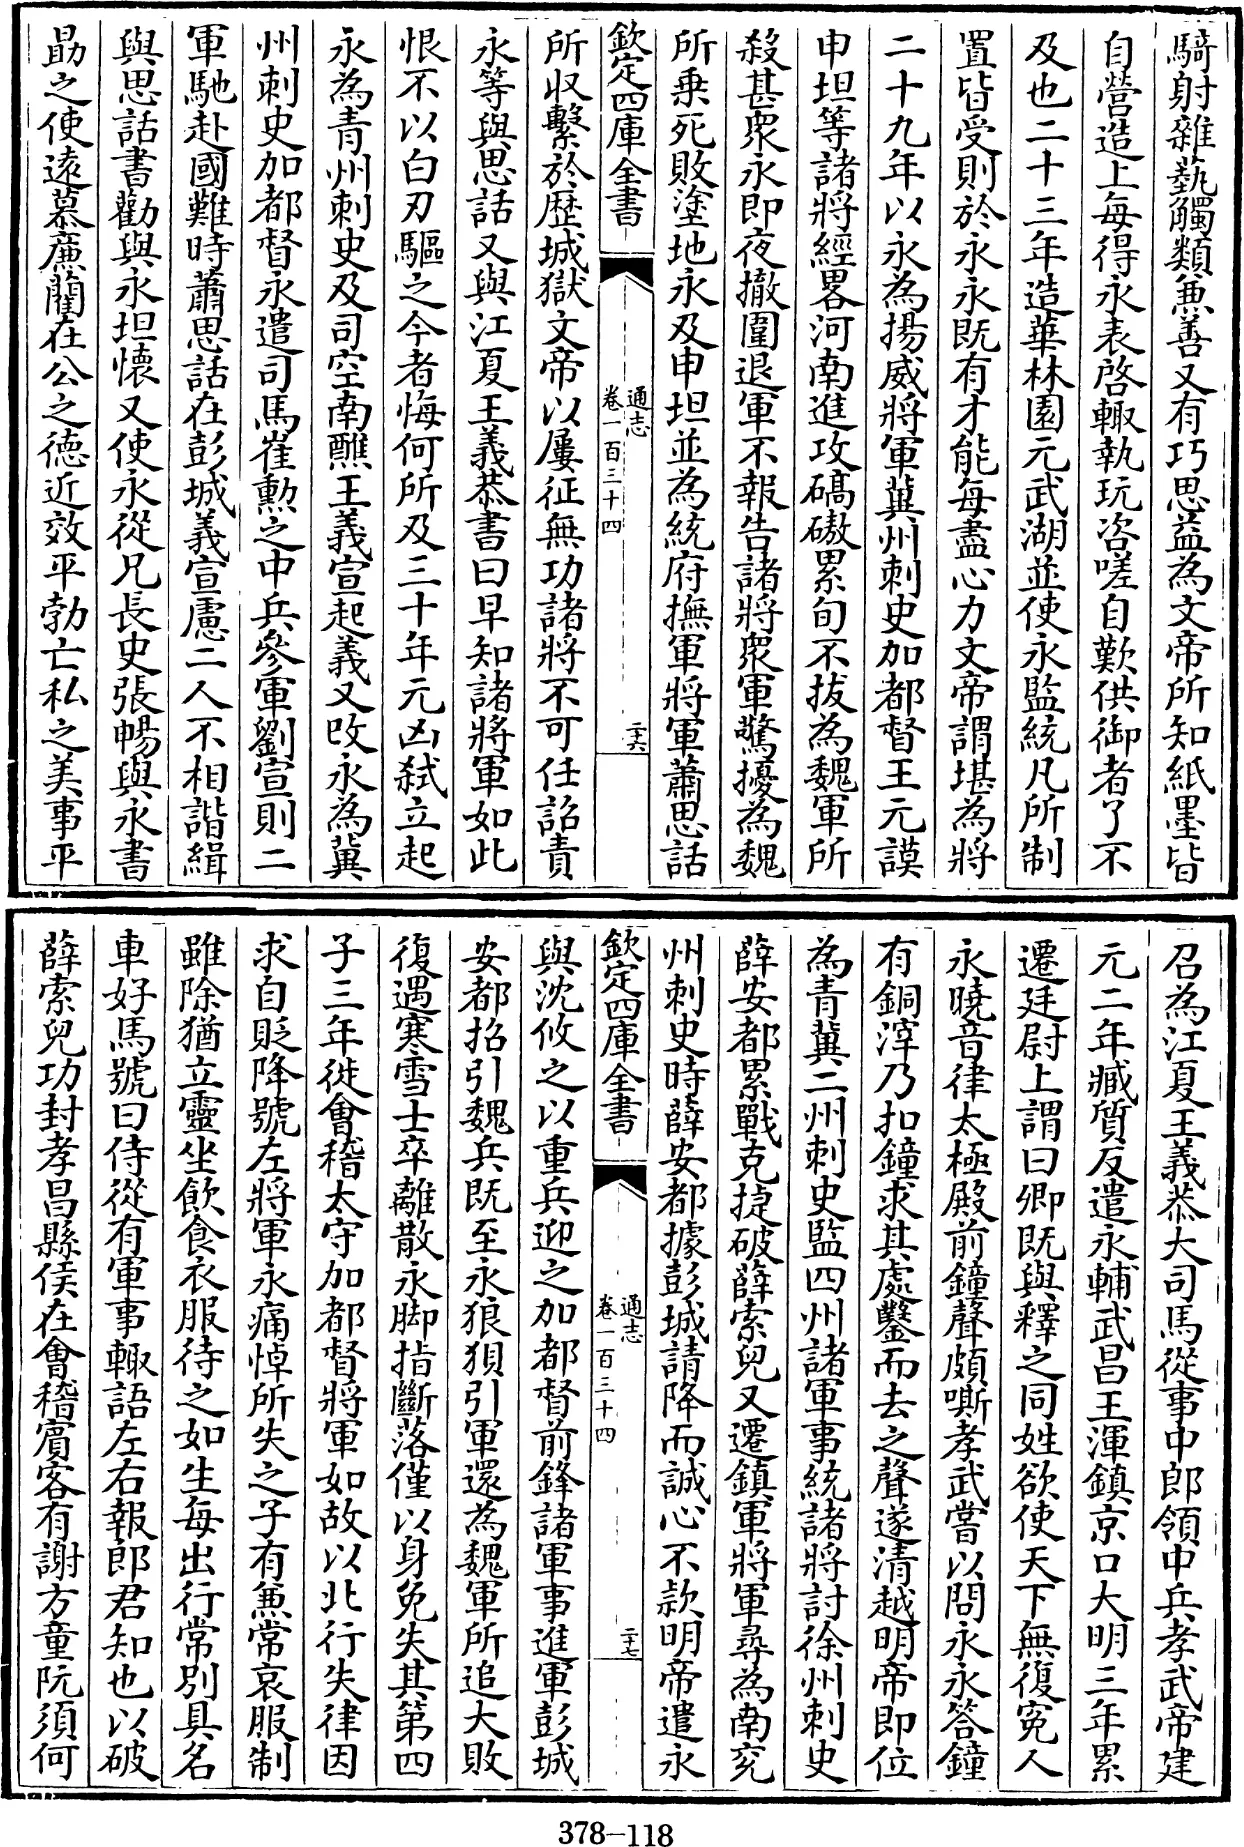 騎射雜藝觸類兼善又有巧思益為文帝所知紙墨皆
自營造上每得永表啓輙執玩咨嗟自歎供御者了不
及也二十三年造華林園元武湖並使永監統凡所制
置皆受則於永永既有才能每盡心力文帝謂堪為將
二十九年以永為揚威將軍冀州刺史加都督王元謨
申坦等諸將經畧河南進攻碻磝累旬不拔為魏軍所
殺甚衆永即夜撤圍退軍不報告諸將衆軍驚擾為魏
所乗死敗塗地永及申坦並為統府撫軍將軍蕭思話
欽定四庫全書
通志
卷一百三十四
二十六
所收繫於歴城獄文帝以屢征無功諸將不可任詔責
永等與思話又與江夏王義恭書曰早知諸將軍如此
恨不以白刃驅之今者悔何所及三十年元凶弑立起
永為青州刺史及司空南譙王義宣起義又改永為冀
州刺史加都督永遣司馬崔勲之中兵參軍劉宣則二
軍馳赴國難時蕭思話在彭城義宣慮二人不相諧緝
與思話書勸與永坦懐又使永從兄長史張暢與永書
勗之使遠慕廉藺在公之徳近效平勃亡私之美事平
召為江夏王義恭大司馬從事中郎領中兵孝武帝建
元二年臧質反遣永輔武昌王渾鎮京口大明三年累
遷廷尉上謂曰卿既與釋之同姓欲使天下無復寃人
永曉音律太極殿前鐘聲頗嘶孝武嘗以問永永答鐘
有銅滓乃扣鐘求其處鑿而去之聲遂清越明帝即位
為青冀二州刺史監四州諸軍事統諸將討徐州刺史
薛安都累戰克捷破薛索兒又遷鎮軍將軍尋為南兖
州刺史時薛安都據彭城請降而誠心不款明帝遣永
欽定四庫全書
通志
卷一百三十四
二十七
與沈攸之以重兵迎之加都督前鋒諸軍事進軍彭城
安都招引魏兵既至永狼狽引軍還為魏軍所追大敗
復遇寒雪士卒離散永脚指斷落僅以身免失其第四
子三年徙會稽太守加都督將軍如故以北行失律因
求自貶降號左將軍永痛悼所失之子有兼常哀服制
雖除猶立靈坐飲食衣服待之如生每出行常別具名
車好馬號曰侍從有軍事輙語左右報郎君知也以破
薛索兒功封孝昌縣侯在會稽賓客有謝方童阮須何
378-118